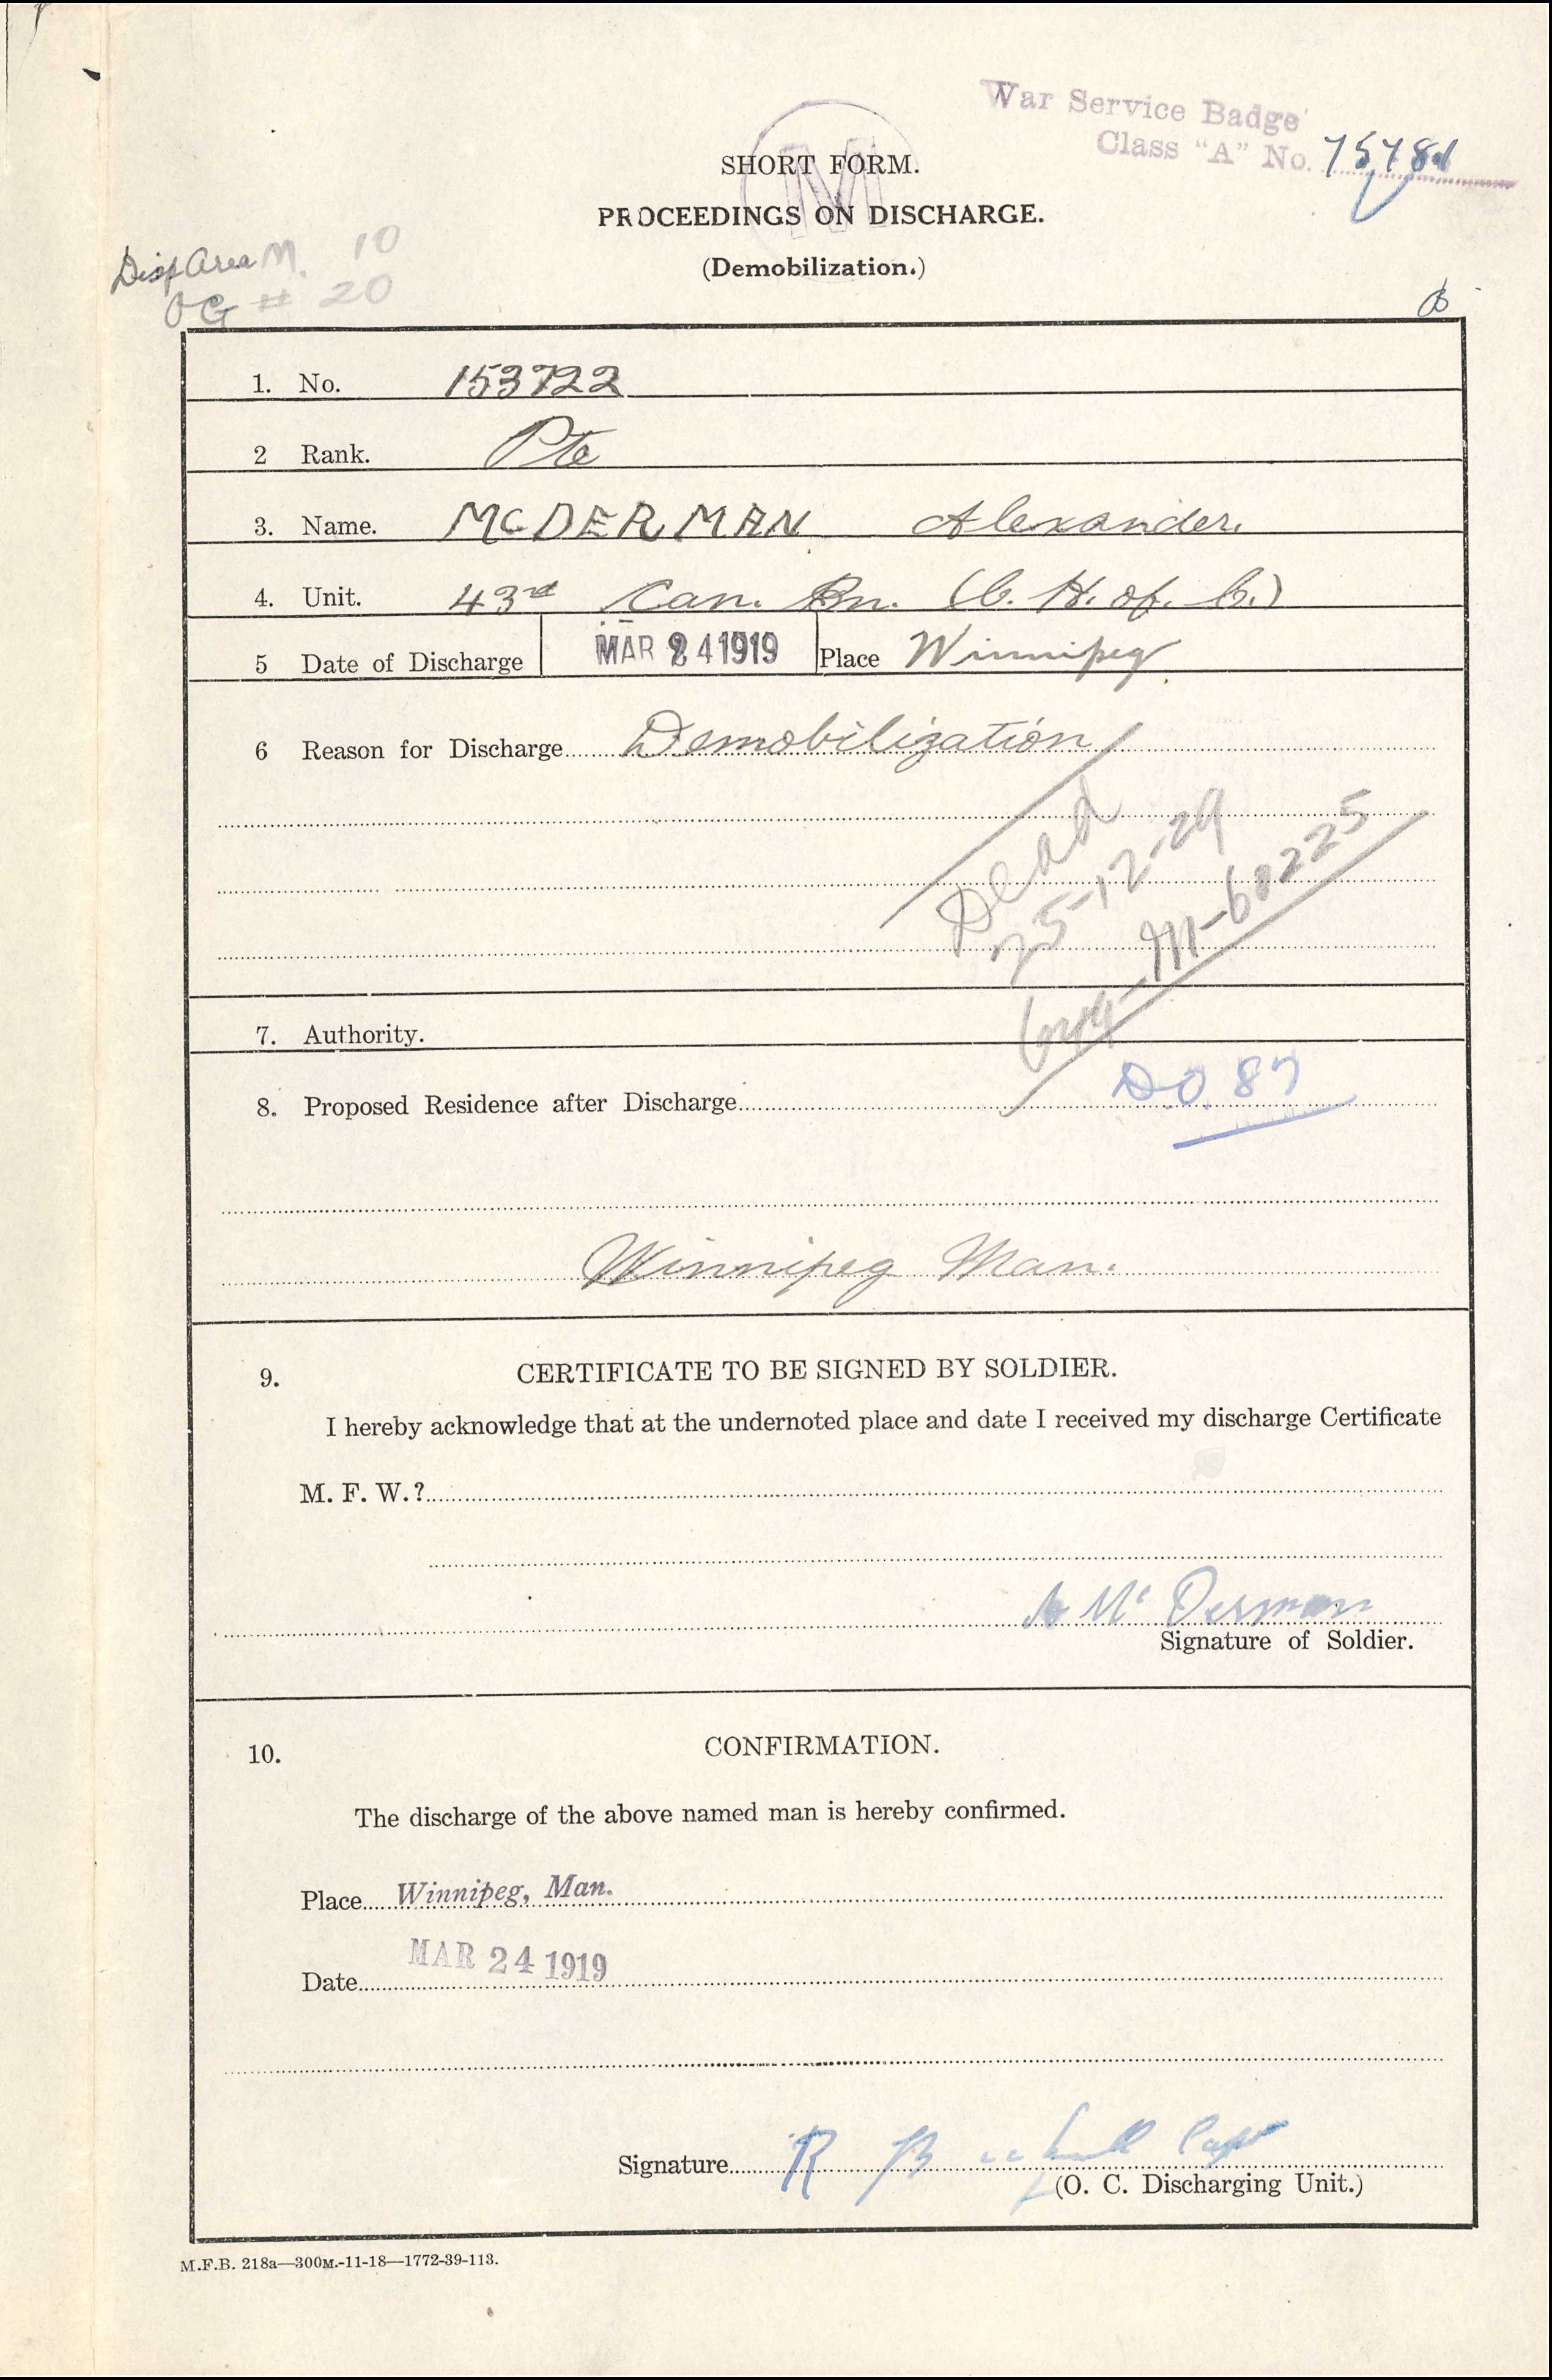 War Service Badge
Class "A" No.
M
SHORT FORM.
PROCEEDINGS ON DISCHARGE.
(Demobilization.)
Disp Area M. 10
OG # 20
1. No. 153722
2 Rank. Pte
3. Name. MCDERMAN Alexander.
4. Unit. 43rd Can. Bn. (C. H. of. C.)
5 Date of Discharge MAR 24 1919 Place Winnipeg
6 Reason for Discharge Demobilization
Dead
25-12-29
M-60225
7. Authority.
8. Proposed Residence after Discharge D.O. 87
Winnipeg Man.
9. CERTIFICATE TO BE SIGNED BY SOLDIER.
I hereby acknowledge that at the undernoted place and date I received my discharge Certificate
M. F. W.?
A Mc Derman
Signature of Soldier.
10. CONFIRMATION.
The discharge of the above named man is hereby confirmed.
Place Winnipeg, Man.
Date MAR 24 1919
Signature R B Capt
(O. C. Discharging Unit.)
M.F.B. 218a—300M.-11-18—1772-39-113.